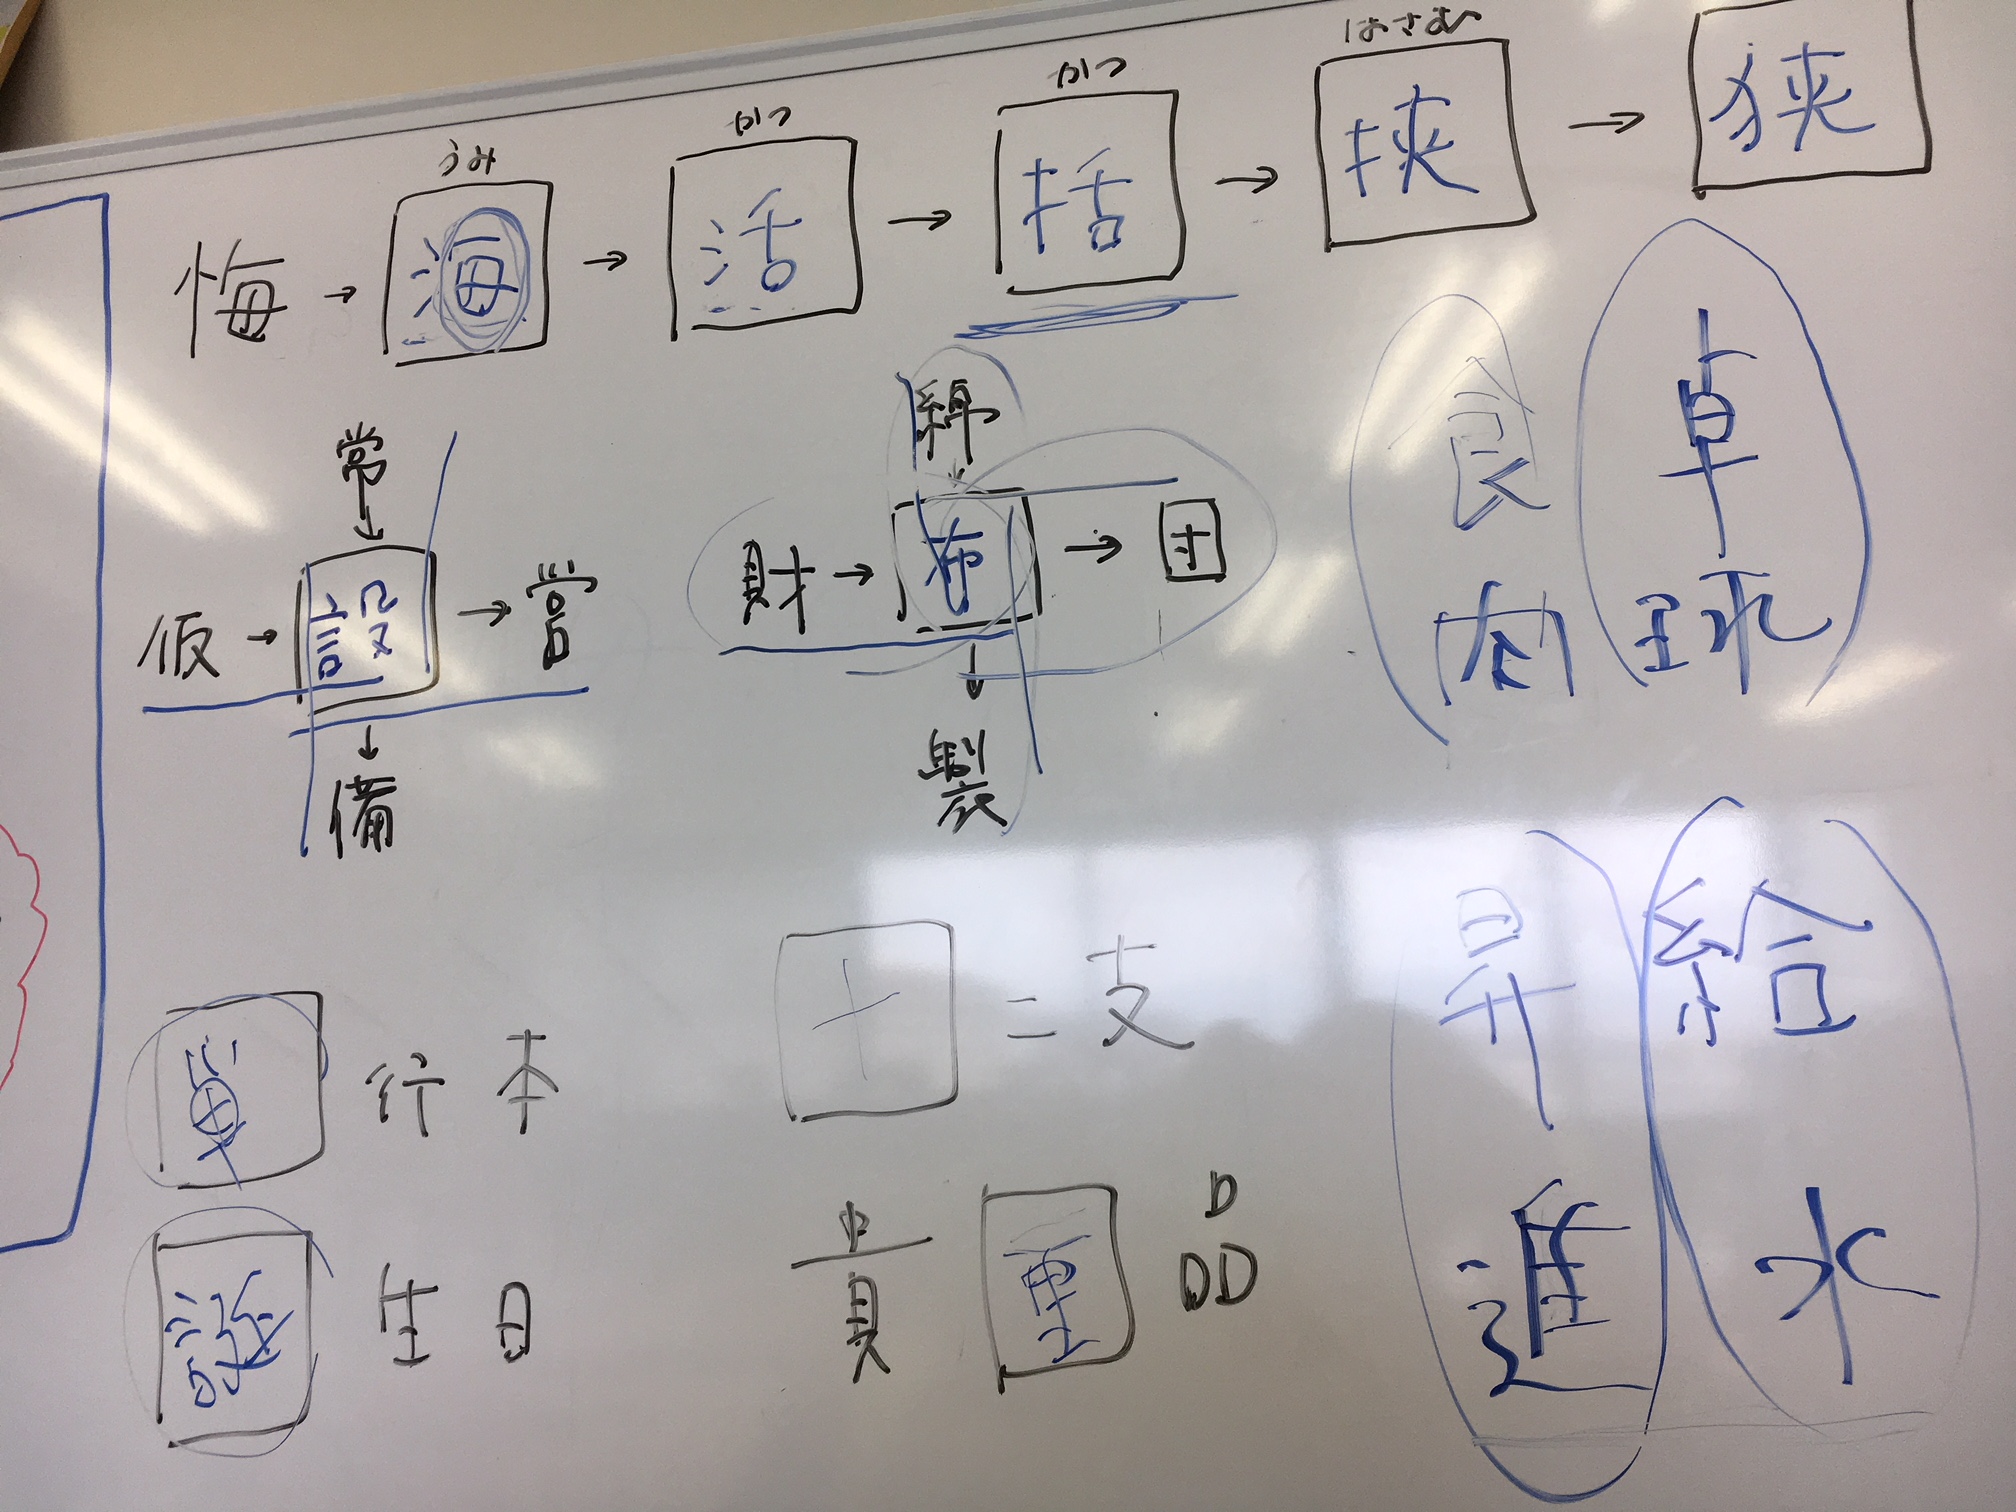 うみ かつ かつ はさむ
悔→海→活→括→挟→狭
常
↓
仮→設→営
↓
備
綿
↓
財→布→団
↓
製
食 卓
肉 球
単行本
誕生日
十二支
貴重品
昇 給
進 水